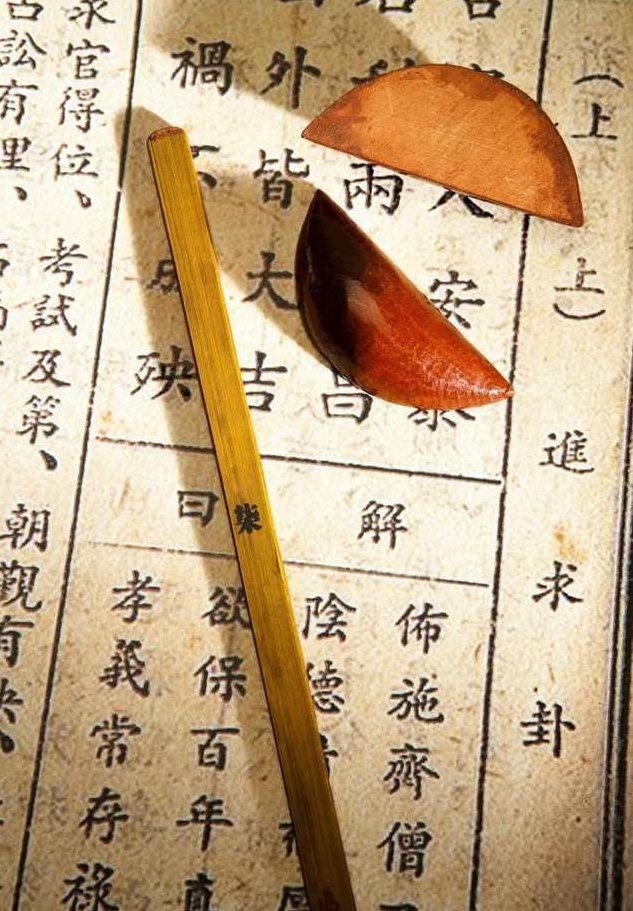 （上上）進求卦
安泰
兩昌
外皆大吉
禍不成殃
解曰
佈施齊僧
陰德
欲保百年直
孝義常存祿
求官得位、考試及第、朝觀有
訟有理、
柒